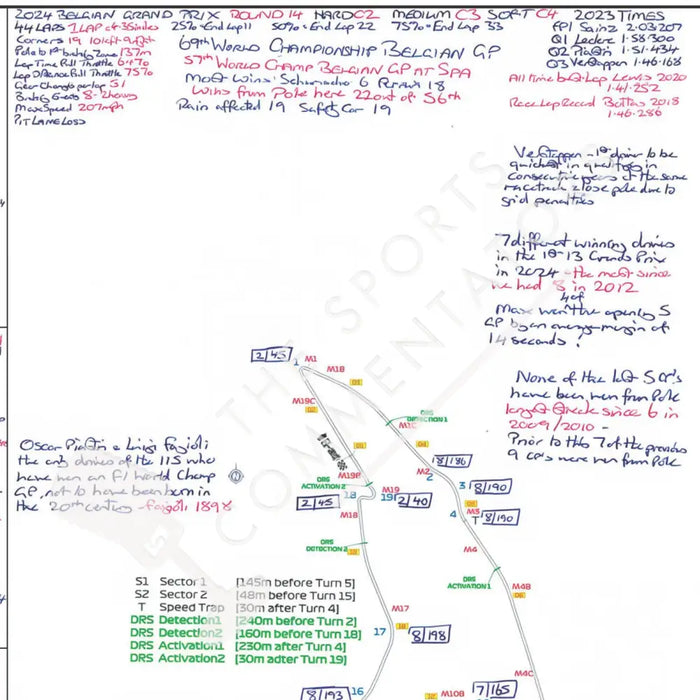 2024 BELGIAN GRAND PRIX ROUND 14 HARD C2 MEDIUM C3 SOFT C4 2023 TIMES
44 LAPS 1 LAP
25% = End Lap 11 50% = End Lap 22 75% = End Lap 33
FP1 Sainz 2.03.207
Corners 19 10 left - 9 right
Q1 Leclerc 1.58.300
Pole to 1st braking zone 137m
69th WORLD CHAMPIONSHIP BELGIAN GP
Q2 Piastri 1.51.434
Lap Time Full Throttle 64%
57th WORLD CHAMP BELGIAN GP AT SPA
Q3 Verstappen 1.46.168
Lap Distance Full Throttle 75%
Most Wins Schumacher 6
All Time best Lap Lewis 2020
1.41.252
Gear Changes per lap 51
Wins from Pole here 22 out of 56
Braking Events 8 - 2 heavy
Rain affected 19 Safety Car 19
Race Lap Record Bottas 2018
1.46.286
Max Speed 207mph
PIT LANE LOSS
Verstappen - 1st driver to be
quickest in qualifying in
consecutive years at the same
racetrack & lose pole due to
grid penalties
7 different winning drivers
in the 1st 13 Grands Prix
in 2024 - the most since
we had 8 in 2012
Max won the opening 5
4 of
GP by an average margin of
14 seconds!
None of the last 5 GP's
have been won from Pole
longest streak since 6 in
2009/2010 -
Prior to this 7 of the previous
9 GP's were won from Pole
Oscar Piastri & Luigi Fagioli
the only drivers of the 115 who
have won an F1 World Champ
GP, not to have been born in
the 20th century - Fagioli 1898
THE SPORTS COMMENTATORS
2/45 1 M1
M1B
01
M19C
02
DRS
DETECTION 1
M1C
01
04
M19B
M2
2
8/186
DRS
ACTIVATION 2
18
M19
19
2/40
3 8/190
2/45
M18
4 M3
T 8/190
DRS
DETECTION 2
M4
DRS
ACTIVATION 1
M4B
06
S1 Sector 1 [145m before Turn 5]
S2 Sector 2 [48m before Turn 15]
T Speed Trap [30m after Turn 4]
DRS Detection1 [240m before Turn 2]
DRS Detection2 [160m before Turn 18]
DRS Activation1 [230m after Turn 4]
DRS Activation2 [30m adter Turn 19]
M17
17
8/198
M4C
8/193 16
M10B
7/165